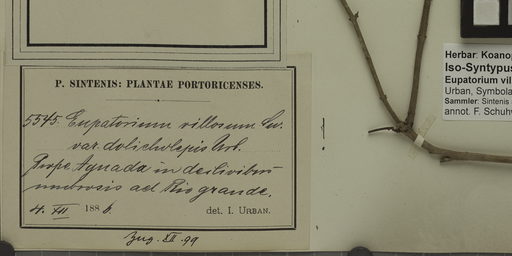 P. SINTENIS: PLANTAE PORTORICENSES.
5545. Eupatorium villosum Sw.
var. dolicholepis Urb.
Prope Aguada in declivibus
umbrosis ad Rio grande.
4. XII 1886. det. I. URBAN.
Zug. XII. 99
Herbar: Koanop
Iso-Syntypus
Eupatorium vil
Urban, Symbola
Sammler: Sintenis
annot. F. Schuhw